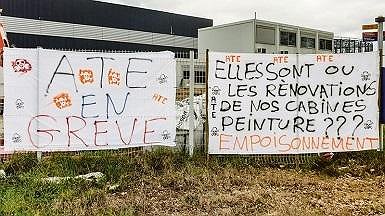 ATE
ATE
EN
GREVE
ATE ATE ATE
ELLES SONT OU
LES RÉNOVATIONS
ATE
DE NOS CABINES
PEINTURE ???
EMPOISONNEMENT